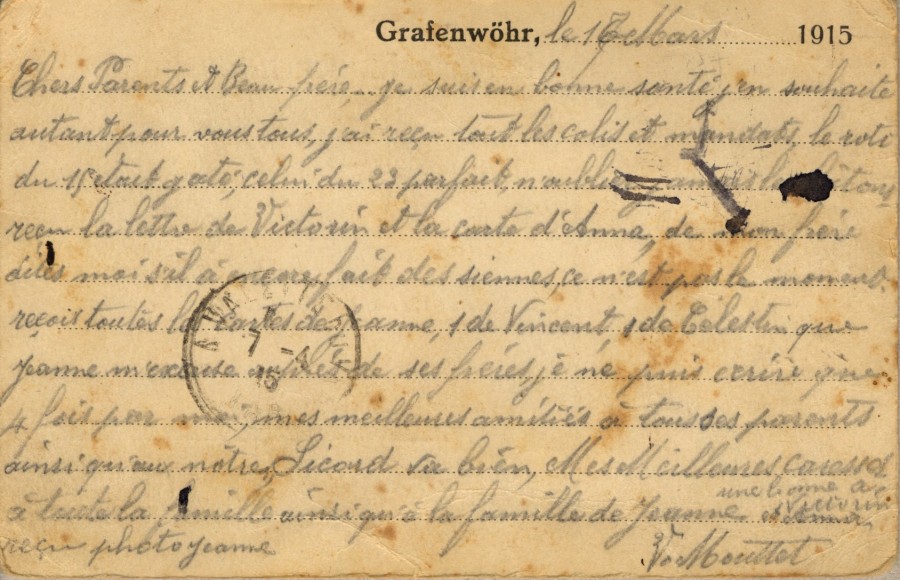 Grafenwöhr, le 17 Mars 1915
Chers Parents et Beau frére je suis en bonne santé j'en souhaite
autant pour vous tous, j'ai reçu tout les colis et mandats, le roti
du 15 était gaté, celui du 23 parfait, n'oubliez
reçu la lettre de Victorin et la carte d'Anna, de mon frére
dites moi s'il à encore fait des siennes, ce n'est pas le moment
reçois toutes les cartes de Jeanne, 1 de Vincent, 1 de Célestin que
Jeanne m'excuse auprés de ses fréres, je ne puis ecrire que
4 fois par moi, mes meilleures amitiés à tous ses parents
ainsi qu'au notre, Sicard va bien, Mes Meilleures caresses
à toute la famille ainsi qu'à la famille de Jeanne
une bonne à
Victorin
reçu photo Jeanne
Vr Mouttet